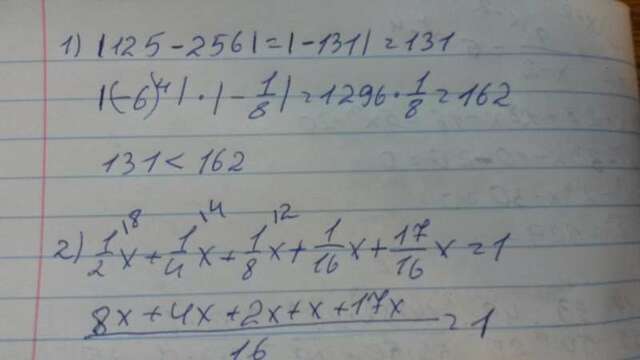 1) |125 - 256| = |-131| = 131
|(-6)⁴| · |-1/8| = 1296 · 1/8 = 162
131 < 162
2) 1/2\⁸ x + 1/4\⁴ x + 1/8\² x + 1/16 x + 17/16 x = 1
(8x + 4x + 2x + x + 17x)/16 = 1